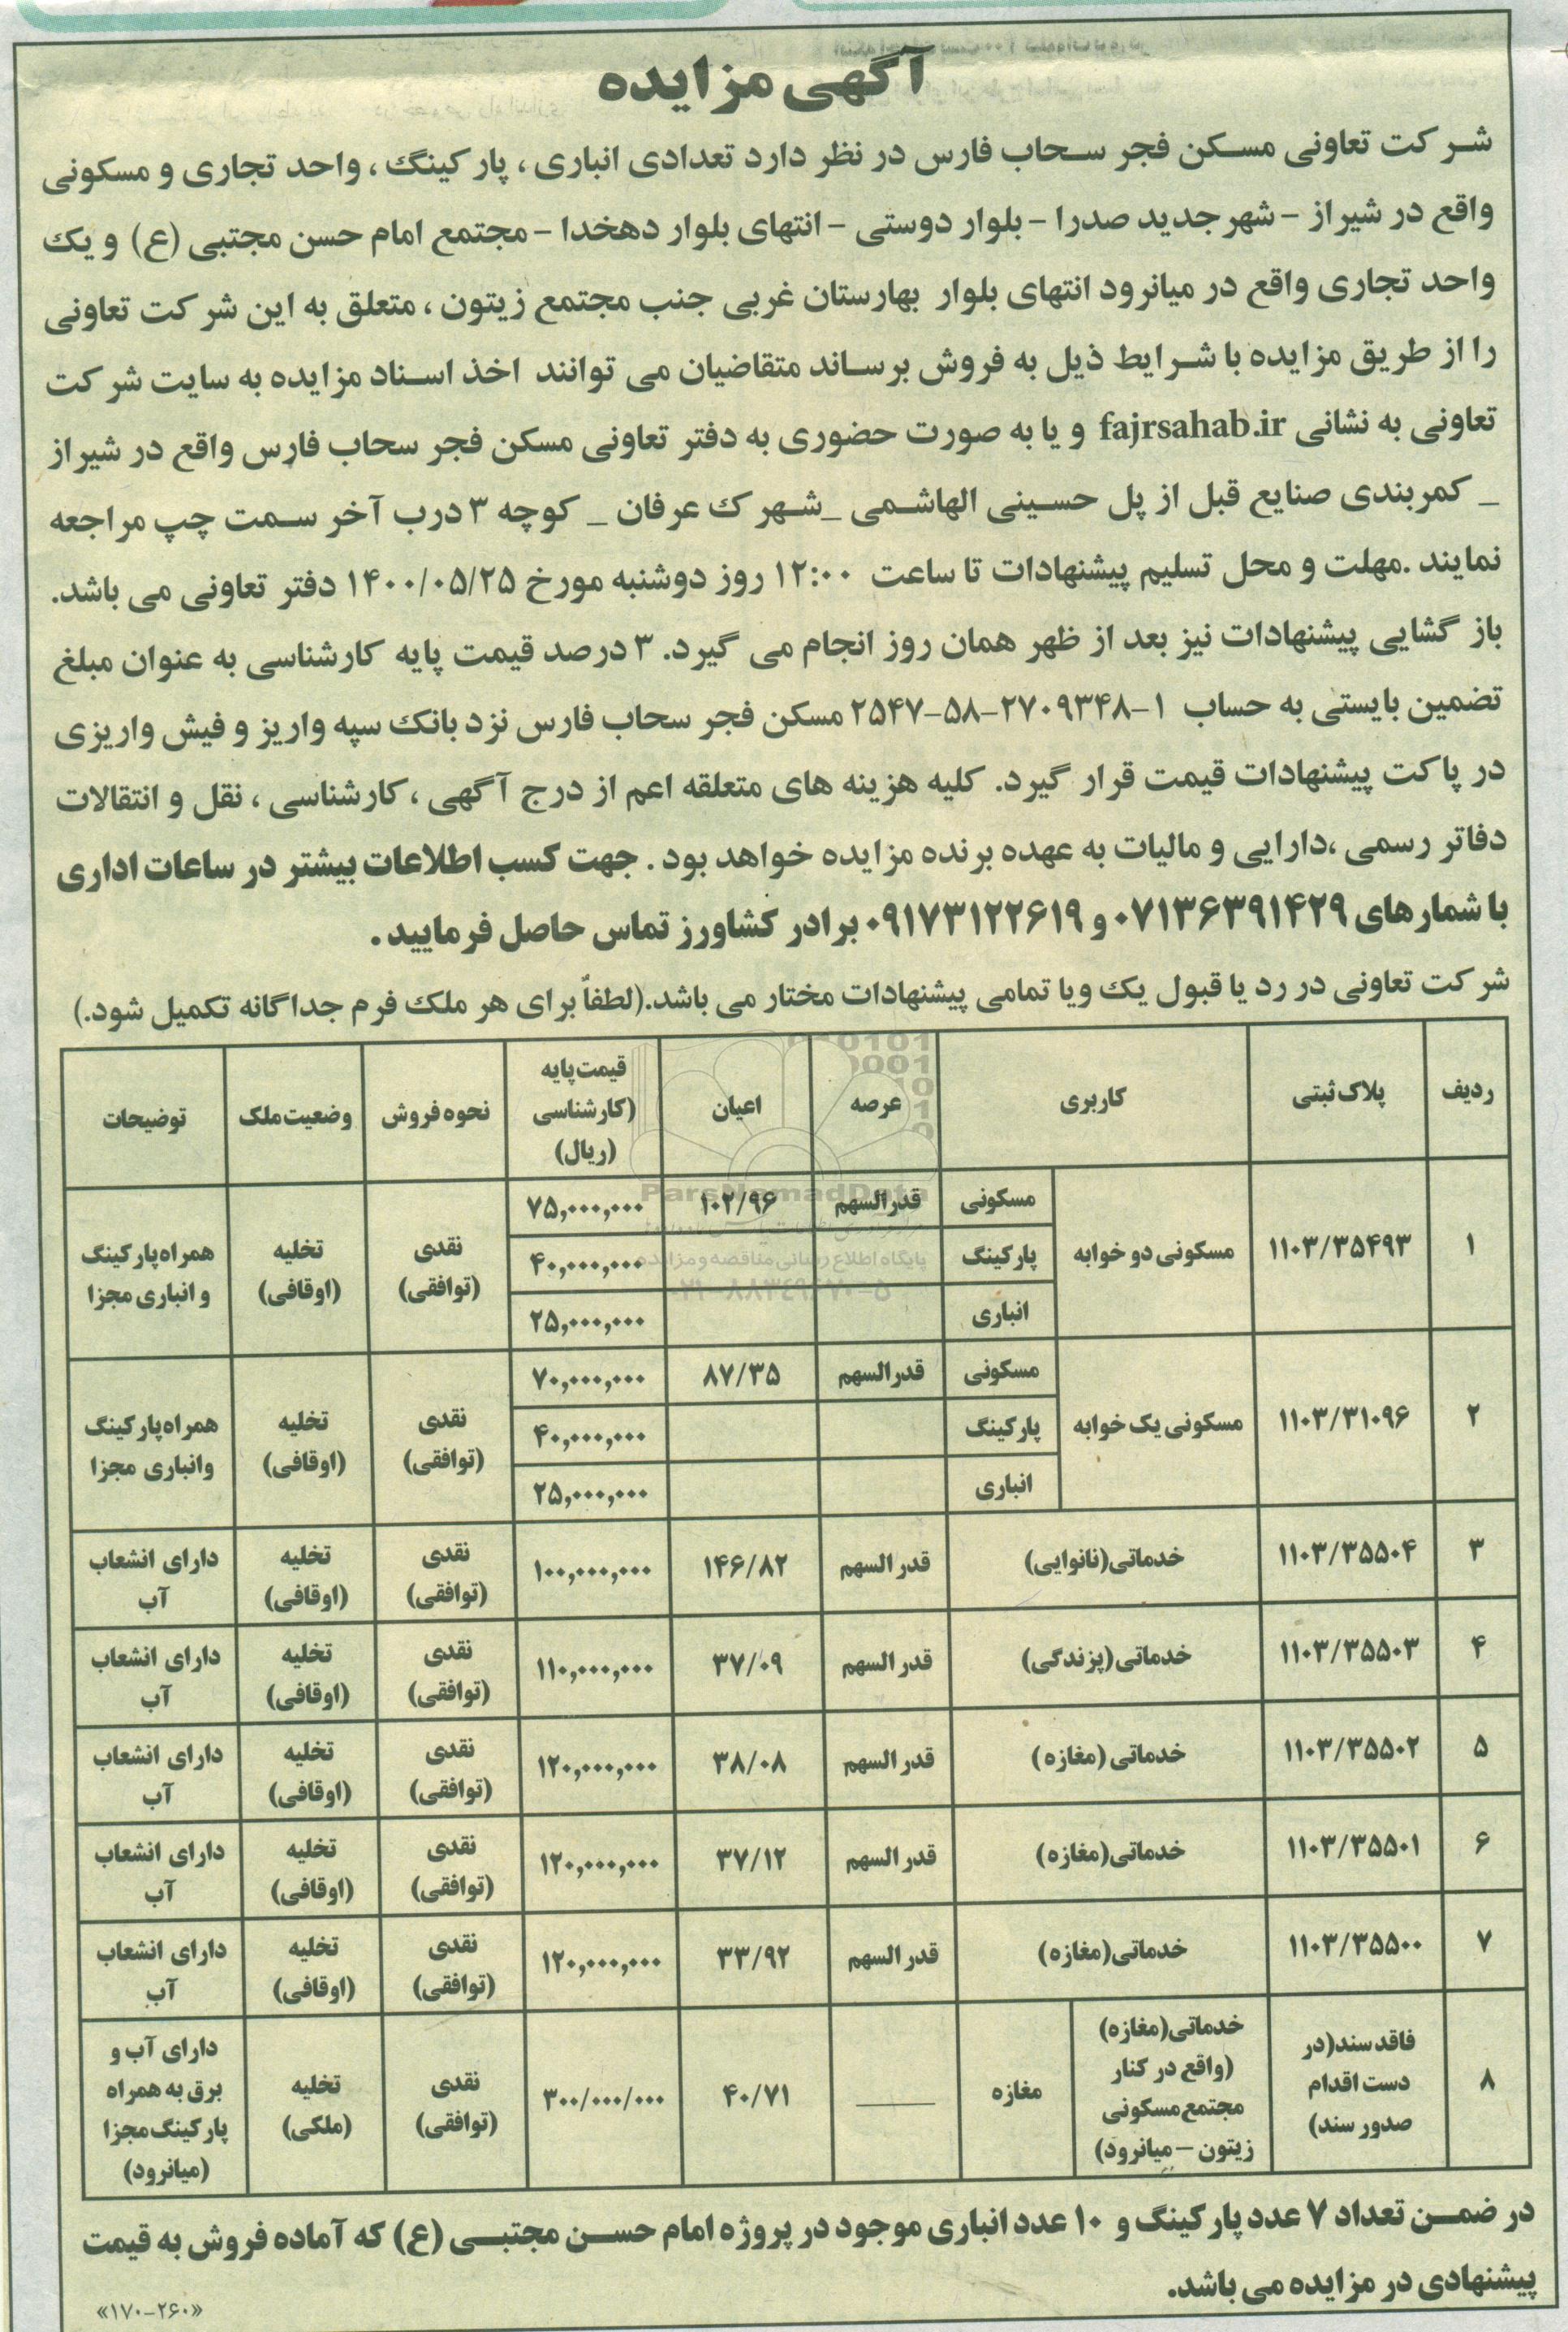 آگهی مزایده
شرکت تعاونی مسکن فجر سحاب فارس در نظر دارد تعدادی انباری ، پارکینگ ، واحد تجاری و مسکونی
واقع در شیراز - شهر جدید صدرا - بلوار دوستی - انتهای بلوار دهخدا - مجتمع امام حسن مجتبی (ع) و یک
واحد تجاری واقع در میانرود انتهای بلوار بهارستان غربی جنب مجتمع زیتون ، متعلق به این شرکت تعاونی
را از طریق مزایده با شرایط ذیل به فروش برساند متقاضیان می توانند اخذ اسناد مزایده به سایت شرکت
تعاونی به نشانی fajrsahab.ir و یا به صورت حضوری به دفتر تعاونی مسکن فجر سحاب فارس واقع در شیراز
_ کمربندی صنایع قبل از پل حسینی الهاشمی _شهرک عرفان _ کوچه ۳ درب آخر سمت چپ مراجعه
نمایند .مهلت و محل تسلیم پیشنهادات تا ساعت ۱۲:۰۰ روز دوشنبه مورخ ۱۴۰۰/۰۵/۲۵ دفتر تعاونی می باشد.
باز گشایی پیشنهادات نیز بعد از ظهر همان روز انجام می گیرد. ۳ درصد قیمت پایه کارشناسی به عنوان مبلغ
تضمین بایستی به حساب ۱-۲۷۰۹۳۴۸-۵۸-۲۵۴۷ مسکن فجر سحاب فارس نزد بانک سپه واریز و فیش واریزی
در پاکت پیشنهادات قیمت قرار گیرد. کلیه هزینه های متعلقه اعم از درج آگهی ، کارشناسی ، نقل و انتقالات
دفاتر رسمی ،دارایی و مالیات به عهده برنده مزایده خواهد بود . جهت کسب اطلاعات بیشتر در ساعات اداری
با شمارهای ۰۷۱۳۶۳۹۱۴۲۹ و ۰۹۱۷۳۱۲۲۶۱۹ برادر کشاورز تماس حاصل فرمایید .
شرکت تعاونی در رد یا قبول یک ویا تمامی پیشنهادات مختار می باشد.(لطفاً برای هر ملک فرم جداگانه تکمیل شود.)
ردیف پلاک ثبتی کاربری عرصه اعیان قیمت پایه (کارشناسی) (ریال) نحوه فروش وضعیت ملک توضیحات
۱ ۱۱۰۳/۳۵۴۹۳ مسکونی دو خوابه مسکونی قدرالسهم ۱۰۲/۹۶ ۷۵,۰۰۰,۰۰۰ نقدی (توافقی) تخلیه (اوقافی) همراه پارکینگ و انباری مجزا
پارکینگ ۴۰,۰۰۰,۰۰۰
انباری ۲۵,۰۰۰,۰۰۰
۲ ۱۱۰۳/۳۱۰۹۶ مسکونی یک خوابه مسکونی قدرالسهم ۸۷/۳۵ ۷۰,۰۰۰,۰۰۰ نقدی (توافقی) تخلیه (اوقافی) همراه پارکینگ وانباری مجزا
پارکینگ ۴۰,۰۰۰,۰۰۰
انباری ۲۵,۰۰۰,۰۰۰
۳ ۱۱۰۳/۳۵۵۰۴ خدماتی(نانوایی) قدر السهم ۱۴۶/۸۲ ۱۰۰,۰۰۰,۰۰۰ نقدی (توافقی) تخلیه (اوقافی) دارای انشعاب آب
۴ ۱۱۰۳/۳۵۵۰۳ خدماتی(پزندگی) قدر السهم ۳۷/۰۹ ۱۱۰,۰۰۰,۰۰۰ نقدی (توافقی) تخلیه (اوقافی) دارای انشعاب آب
۵ ۱۱۰۳/۳۵۵۰۲ خدماتی (مغازه) قدر السهم ۳۸/۰۸ ۱۲۰,۰۰۰,۰۰۰ نقدی (توافقی) تخلیه (اوقافی) دارای انشعاب آب
۶ ۱۱۰۳/۳۵۵۰۱ خدماتی(مغازه) قدر السهم ۳۷/۱۲ ۱۲۰,۰۰۰,۰۰۰ نقدی (توافقی) تخلیه (اوقافی) دارای انشعاب آب
۷ ۱۱۰۳/۳۵۵۰۰ خدماتی(مغازه) قدر السهم ۳۳/۹۲ ۱۲۰,۰۰۰,۰۰۰ نقدی (توافقی) تخلیه (اوقافی) دارای انشعاب آب
۸ فاقد سند(در دست اقدام صدور سند) خدماتی(مغازه) (واقع در کنار مجتمع مسکونی زیتون – میانرود) مغازه ۴۰/۷۱ ۳۰۰/۰۰۰/۰۰۰ نقدی (توافقی) تخلیه (ملکی) دارای آب و برق به همراه پارکینگ مجزا (میانرود)
در ضمن تعداد ۷ عدد پارکینگ و ۱۰ عدد انباری موجود در پروژه امام حسن مجتبی (ع) که آماده فروش به قیمت
پیشنهادی در مزایده می باشد.
«۱۷۰-۲۶۰»
ParsNamadData
پایگاه اطلاع رسانی مناقصه و مزایده